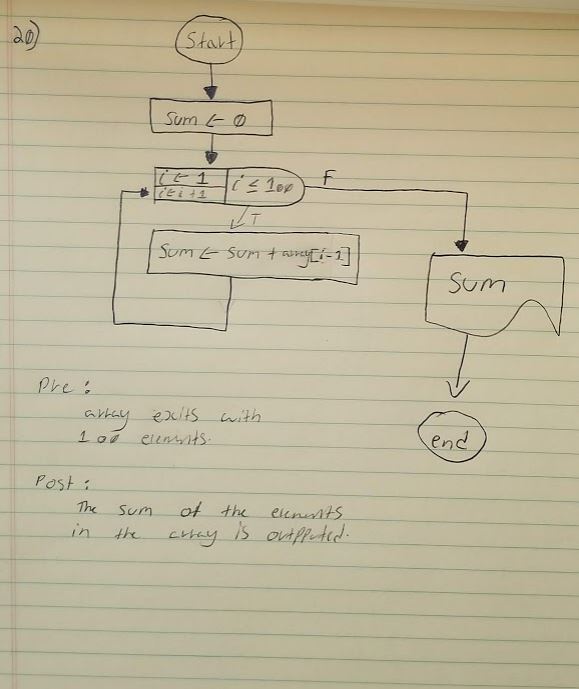 20)
Start
sum ← 0
i ← 1
i ← i + 1
i ≤ 100
F
T
sum ← sum + array[i-1]
sum
end
Pre:
array exits with
100 elements.
Post:
The sum of the elements
in the array is outpputed.